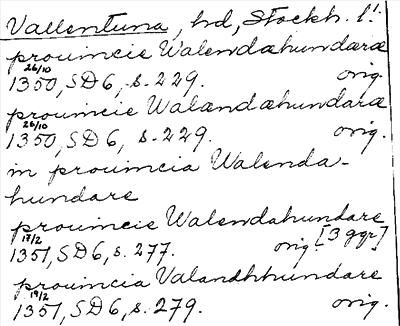 Vallentuna, hd, Stockh. l!
prouincie Walendæhundaræ
26/10 1350, SD 6, s. 229. orig.
prouincie Walandæhundaræ
26/10 1350, SD 6, s. 229. orig.
in prouincia Walenda-
hundare
prouincie Walendahundare
17/2 1351, SD 6, s. 277. orig. [3 ggr]
prouincia Valandhhundare
19/2 1351, SD 6, s. 279. orig.